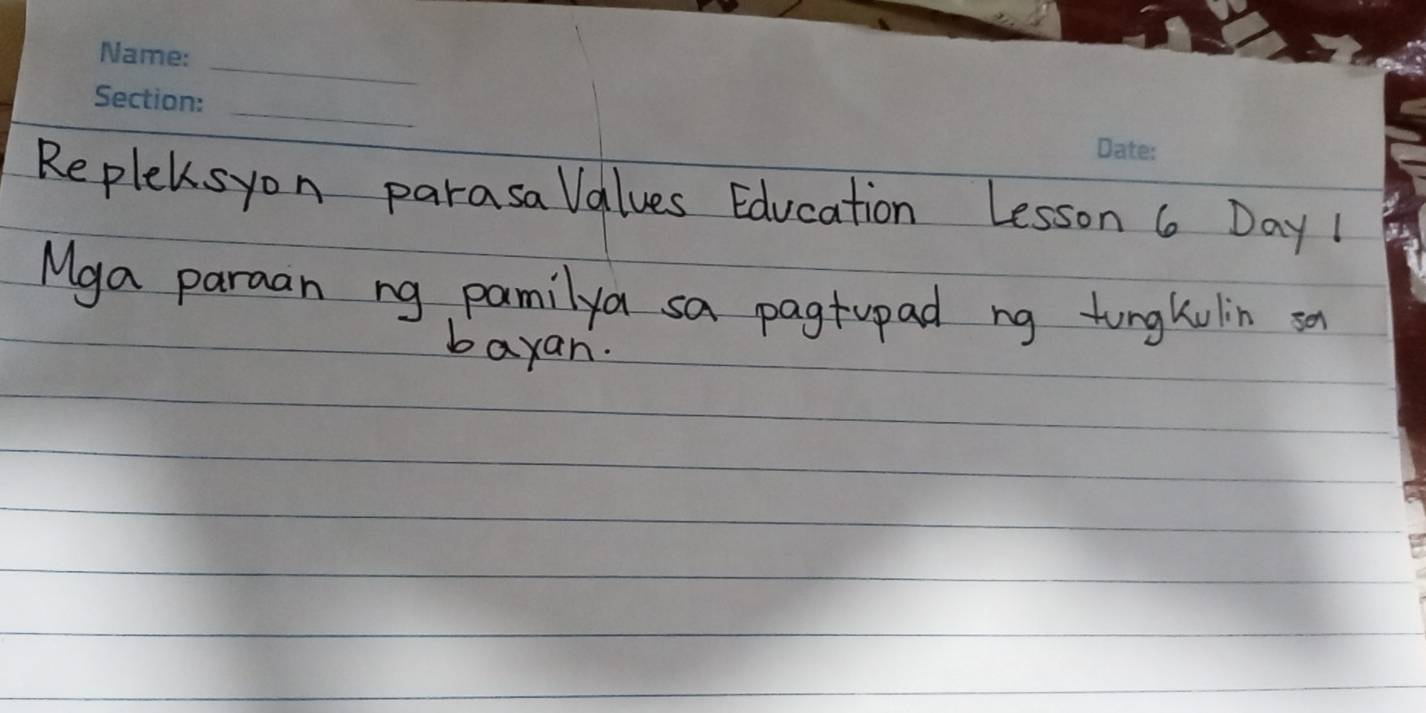 Name:
Section:
Date:
Repleksyon para sa Values Education Lesson 6 Day 1
Mga paraan ng pamilya sa pagtupad ng tungkulin sa
bayan.